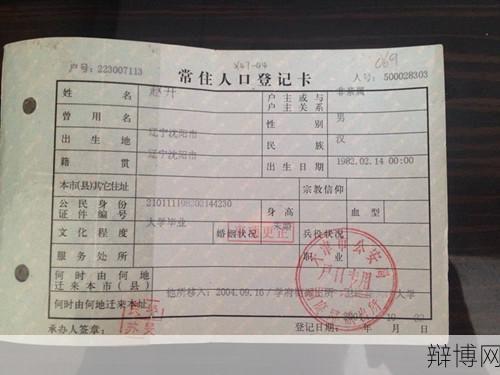 X47-04
069
户号：223007113
常住人口登记卡
人号：500028303
姓 名
户主或与户主关系 非亲属
曾用名
性 别 男
出生地 辽宁沈阳市
民 族 汉
籍 贯 辽宁沈阳市
出生日期 1982.02.14 00:00
本市(县)其它住址
宗教信仰
公民身份证件编号 210111198202144230
身 高
血 型
文化程度 大学毕业
婚姻状况
更正
兵役状况
服务处所
职 业
何时由何地迁来本市(县)
何时由何地迁来本址
他所移入：2004.09.16
大学
天津市公安局
户口专用
承办人签章：
登记日期： 年 月 日
辩博网